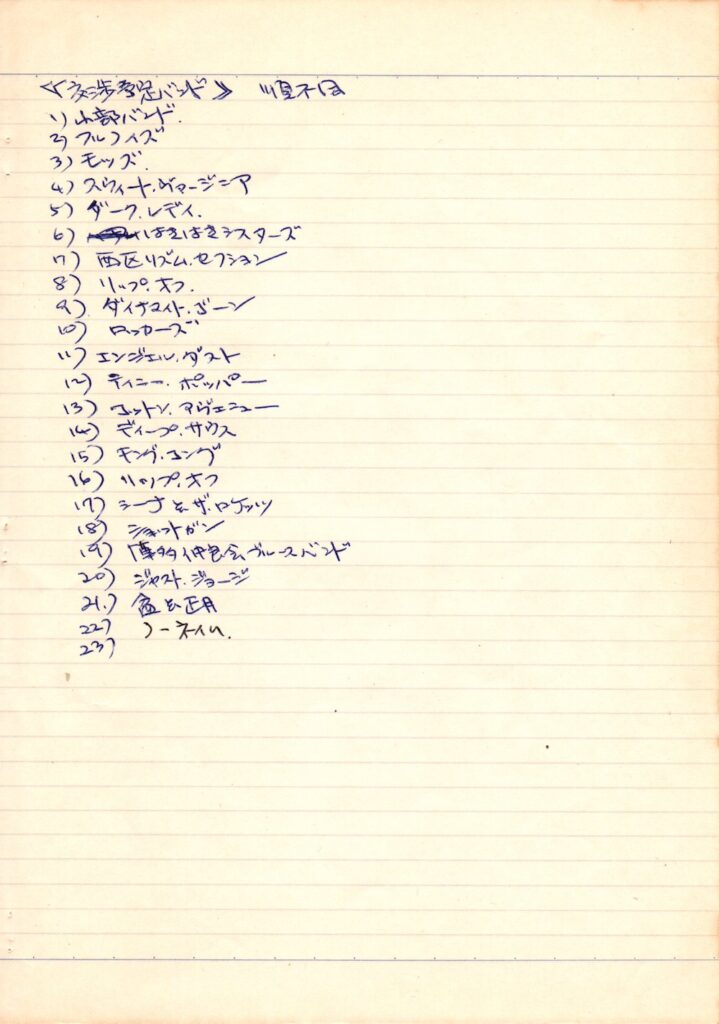 《交渉予定バンド》 順不同
1) 山部バンド.
2) フルノイズ
3) モッズ.
4) スウィート.ヴァージニア
5) ダーク.レディ.
6) はきはきシスターズ
7) 西区リズム.セクション
8) リップ.オフ.
9) ダイナマイト.ゴーン
10) ロッカーズ
11) エンジェル.ダスト
12) ティニー.ポッパー
13) コットン.アヴェニュー
14) ディープ.サウス
15) キング.コング
16) リップ.オフ
17) シーナ&ザ.ロケッツ
18) ショットガン
19) 博多 ブルースバンド
20) ジャスト.ジョージ
21.) 盆と正月
22) ノーネイム.
23)